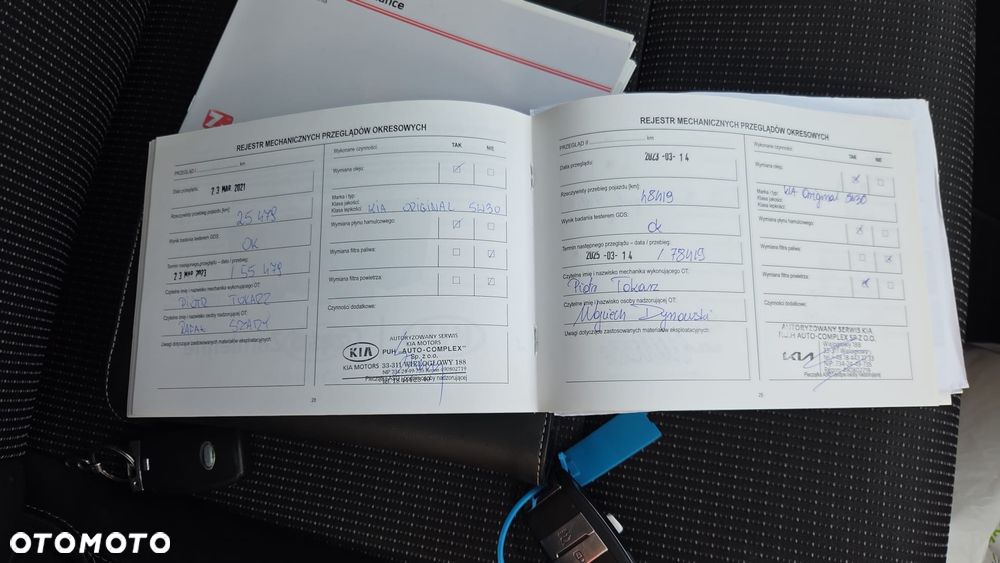 ance
REJESTR MECHANICZNYCH PRZEGLĄDÓW OKRESOWYCH
PRZEGLĄD I ........ km
Data przeglądu:
23 MAR 2021
Rzeczywisty przebieg pojazdu [km]:
25 479
Wynik badania testerem GDS:
OK
Termin następnego przeglądu – data / przebieg:
23 MAR 2023 / 55 479
Czytelne imię i nazwisko mechanika wykonującego OT:
PIOTR TOKARZ
Czytelne imię i nazwisko osoby nadzorującej OT:
RAFAŁ SZADY
Uwagi dotyczące zastosowanych materiałów eksploatacyjnych:
Wykonane czynności: TAK NIE
Wymiana oleju:
Marka i typ:
Klasa jakości:
Klasa lepkości:
KIA ORIGINAL 5W30
Wymiana płynu hamulcowego:
Wymiana filtra paliwa:
Wymiana filtra powietrza:
Czynności dodatkowe:
AUTORYZOWANY SERWIS
KIA MOTORS
PUH „AUTO-COMPLEX”
Sp. z o.o.
33-311 WIELOGŁOWY 188
KIA
KIA MOTORS
28
REJESTR MECHANICZNYCH PRZEGLĄDÓW OKRESOWYCH
PRZEGLĄD II ........ km
Data przeglądu:
2023 -03- 14
Rzeczywisty przebieg pojazdu [km]:
48419
Wynik badania testerem GDS:
ok
Termin następnego przeglądu – data / przebieg:
2025 -03- 14 / 78419
Czytelne imię i nazwisko mechanika wykonującego OT:
Piotr Tokarz
Czytelne imię i nazwisko osoby nadzorującej OT:
Wojciech Dynowski
Uwagi dotyczące zastosowanych materiałów eksploatacyjnych:
Wykonane czynności: TAK NIE
Wymiana oleju:
Marka i typ:
Klasa jakości:
Klasa lepkości:
KIA Original 5W30
Wymiana płynu hamulcowego:
Wymiana filtra paliwa:
Wymiana filtra powietrza:
Czynności dodatkowe:
AUTORYZOWANY SERWIS KIA
P.U.H AUTO-COMPLEX SP. Z O.O.
Wielogłowy 188
33-311 Wielogłowy
KIA
OTOMOTO